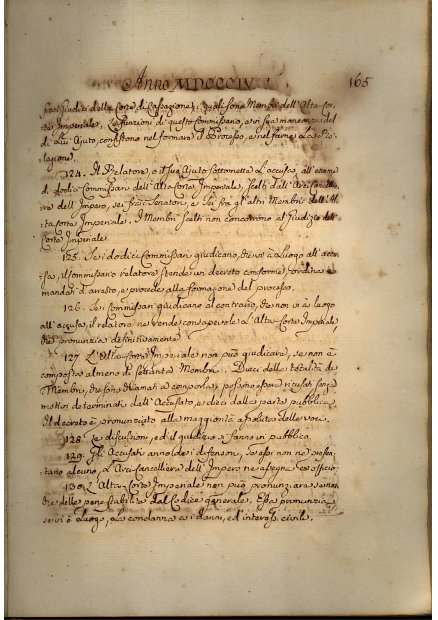 Anno MDCCCIV. 165
fra i Giudici della Corte di Cassazione, i quali sono Membri dell'Alta-Cor-
te Imperiale. Le funzioni di questo Commissario, e in sua mancanza del
di Lui Ajuto, consistono nel formare il Processo, e nel farne la Re-
lazione.
124. Il Relatore, o il suo Ajuto sottomette l'accusa all'esame
di dodici Commissari dell'Alta Corte Imperiale, scelti dall'Arcicancellie-
re dell'Impero, sei fra i Senatori, e Sei fra gli altri Membri dell'Al-
ta Corte Imperiale. I Membri Scelti non concorrono al giudizio dell'
Corte Imperiale.
125. Se i dodici Commissari giudicano, che vi è luogo all'accu-
sa, il Commissario relatore stende un decreto conforme, ordina i
mandati d'arresto, e procede alla formazione del processo.
126. Se i Commissari giudicano al contrario, che non vi è luogo
all'accusa, il relatore ne rende consapevole l'Alta-Corte Imperiale,
che pronunzia definitivamente.
127. L'Alta-Corte Imperiale non può giudicare, se non è
composta almeno di sessanta Membri. Dieci della totalità de'
Membri, che sono chiamati a comporla, possono essere ricusati senza
motivi determinati dall'Accusato, e dieci dalla parte pubblica.
Il decreto è pronunziato alla maggiorità assoluta delle voci.
128. Le discussioni, ed il giudizio si fanno in pubblico.
129. Gli Accusati anno de' i difensori, se essi non ne presen-
tano alcuno, l'Arci-Cancelliere dell'Impero ne assegna ex officio
130. L'Alta-Corte Imperiale non può pronunziare se non
che delle pene stabilite dal Codice generale. Essa pronunzia,
se vi è luogo, la condanna e i danni, ed interessi civili.